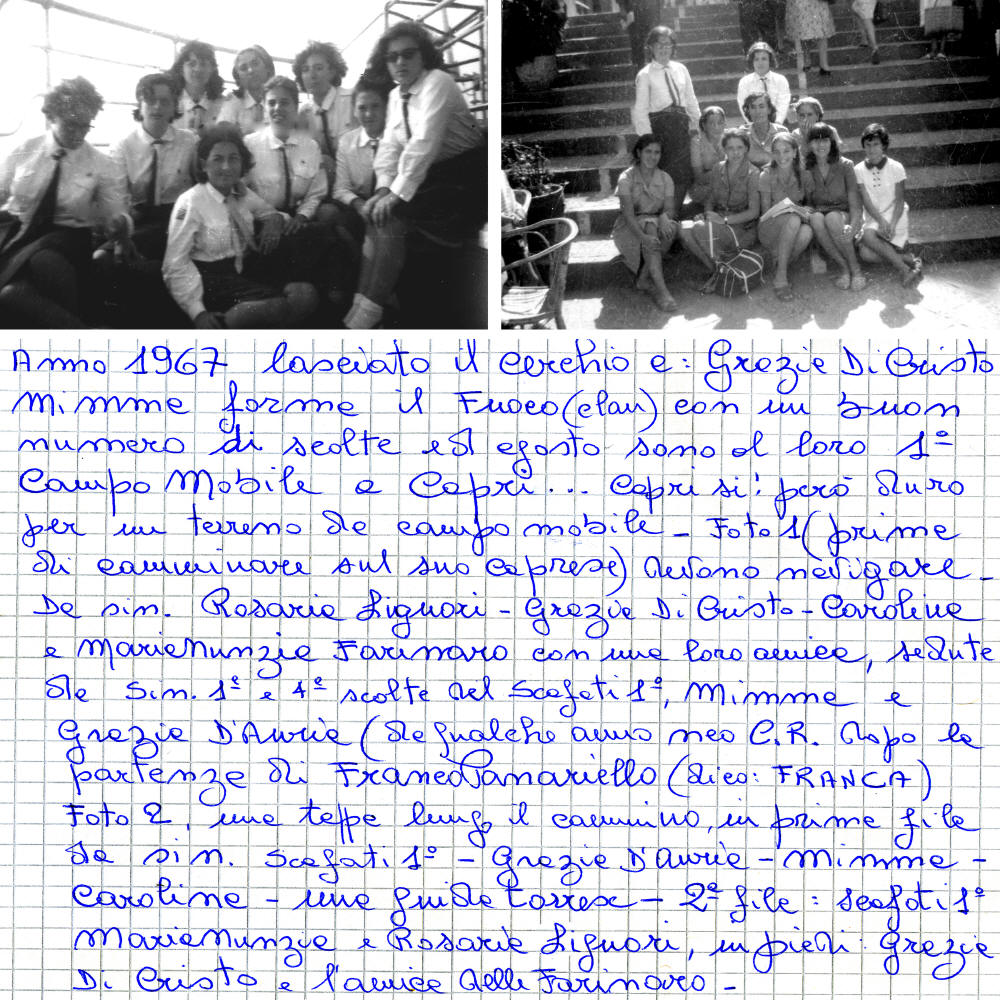 Anno 1967 lasciato il cerchio e: Grazia Di Cristo
Mimma forma il Fuoco (clan) con un buon
numero di scolte ed agosto sono al loro 1º
Campo Mobile a Capri... Capri si! però duro
per un terreno da campo mobile - Foto 1 (prima
di camminare sul suo caprese) devono navigare -
Da sin. Rosaria Liguori - Grazia Di Cristo - Carolina
e MariaNunzia Farinaro con una loro amica, sedute
da sin. 1ª e 4ª scolte del Scafati 1º, Mimma e
Grazia D'Auria (da qualche anno neo C.R. dopo la
partenza di Franco Pamariello (dico: FRANCA)
Foto 2, una tappa lungo il cammino, in prima fila
da sin. Scafati 1º - Grazia D'Auria - Mimma -
Carolina - una guida Torrese - 2ª fila: Scafati 1º
MariaNunzia e Rosaria Liguori, in piedi Grazia
Di Cristo e l'amica delle Farinaro -